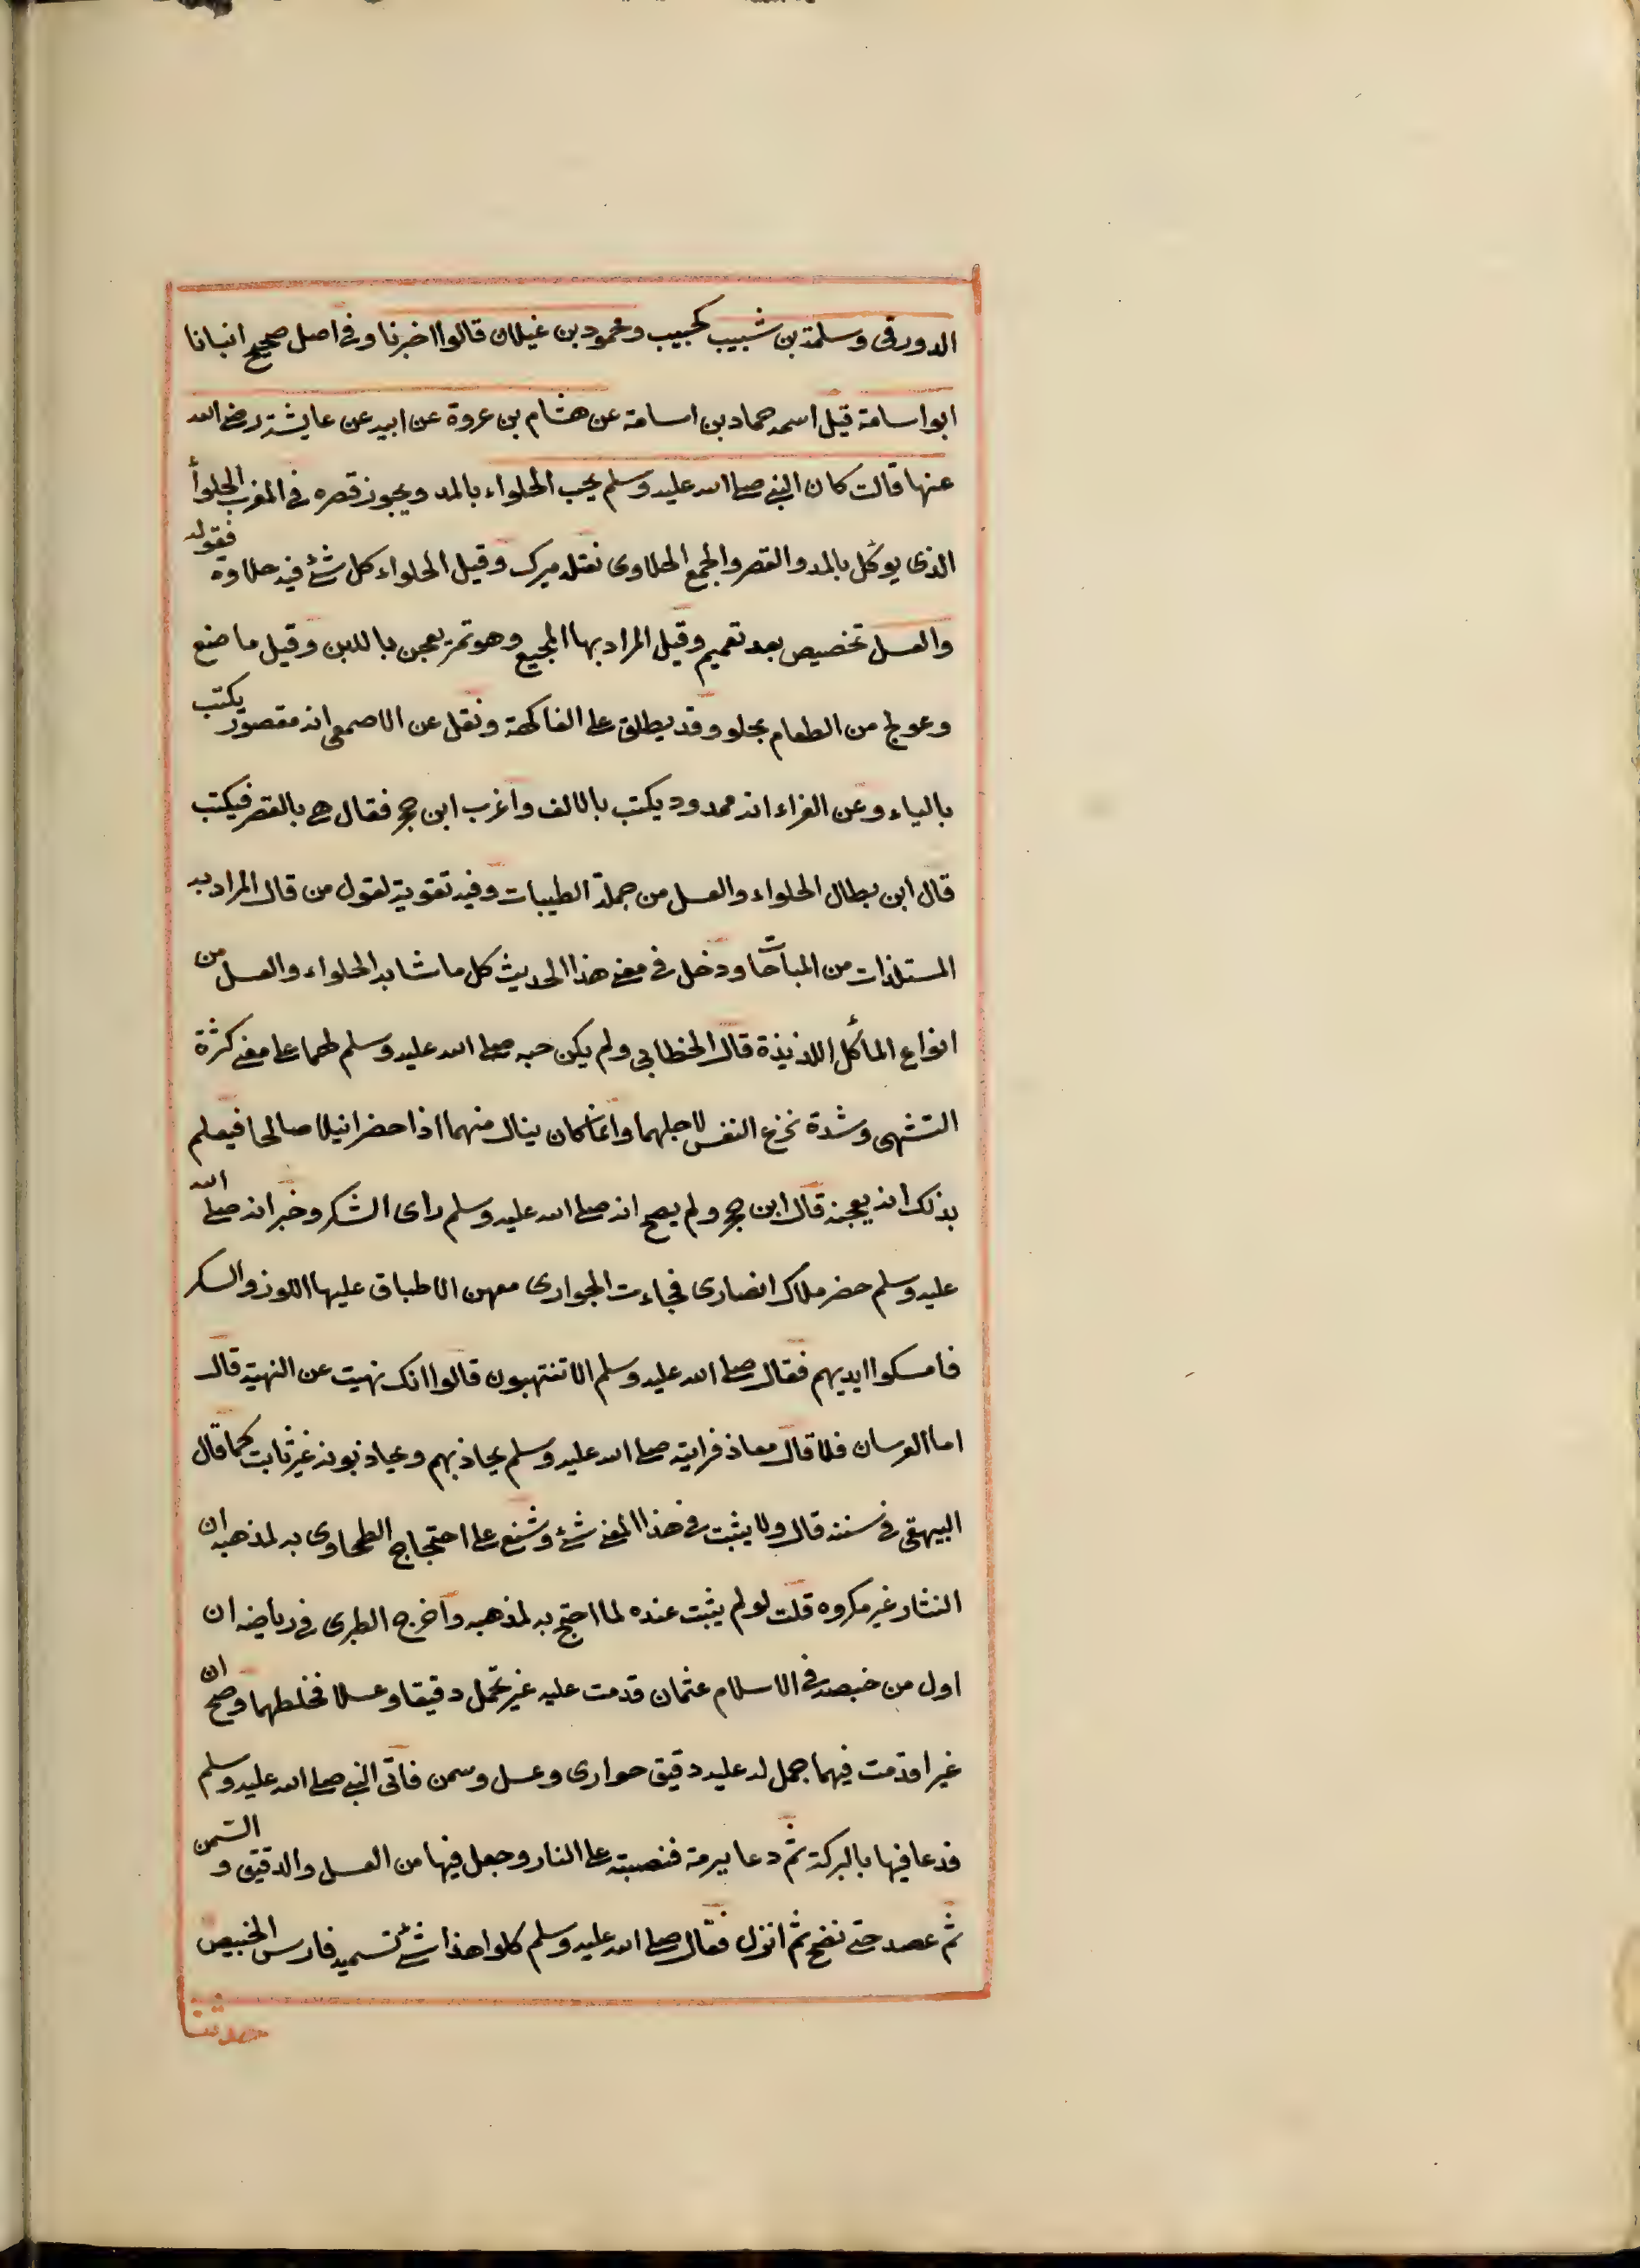 الدورقى وسلمة بن شبيب كحبيب ومحمود بن غيلان قالوا اخبرنا وفى اصل صحيح انبانا
ابو اسامة قيل اسمه حماد بن اسامة عن هشام بن عروة عن ابيه عن عايشة رضى الله
عنها قالت كان النبي صلى الله عليه وسلم يحب الحلواء بالمد ويجوز قصره فى المغرب الحلوأ
الذى يوكل بالمد والقصر والجمع الحلاوى نقله ميرك وقيل الحلواء كل شئ فيه حلاوة فقوله
والعسل تخصيص بعد تعميم وقيل المراد بها المجيع وهو تمر يعجن باللبن وقيل ما صنع
وعولج من الطعام بحلو وقد يطلق على الفاكهة ونقل عن الاصمعى انه مقصور يكتب
بالياء وعن الفراء انه ممدود يكتب بالالف واغرب ابن حجر فقال هى بالقصر فيكتب
قال ابن بطال الحلواء والعسل من جملة الطيبات وفيه تقوية لقول من قال المراد به
المستلذات من المباحات ودخل فى معنى هذا الحديث كل ما شابه الحلواء والعسل من
انواع المأكل اللذيذة قال الخطابى ولم يكن حبه صلى الله عليه وسلم لهما على معنى كثرة
التشهى وشدة نزع النفس لاجلهما وانما كان ينال منهما اذا حضر انيلا صالحا فيعلم
بذلك انه يعجبه قال ابن حجر ولم يصح انه صلى الله عليه وسلم راى السكر وخبر انه صلى الله
عليه وسلم حضر ملاك انصارى فجاءت الجوارى معهن الاطباق عليها اللوز والسكر
فامسكوا ايديهم فقال صلى الله عليه وسلم الا تنتهبون قالوا انك نهيت عن النهبة قال
اما العرسان فلا قال معاذ فرايته صلى الله عليه وسلم يجاذبهم ويجاذبونه غير ثابت كما قال
البيهقى فى سننه قال ولا يثبت فى هذا المعنى شئ وشنع على احتجاج الطحاوى به لمذهبه ان
النثار غير مكروه قلت لو لم يثبت عنده لما احتج به لمذهبه واخرج الطبرى فى رياضه ان
اول من خبص فى الاسلام عثمان قدمت عليه عير تحمل دقيقا وعسلا فخلطهما وصح ان
عيرا قدمت فيها جمل له عليه دقيق حوارى وعسل وسمن فاتى النبي صلى الله عليه وسلم
فدعا فيها بالبركة ثم دعا ببرمة فنصبت على النار وجعل فيها من العسل والدقيق و السمن
ثم عصد حتى نضج ثم انزل فقال صلى الله عليه وسلم كلوا هذا شئ تسميه فارس الخبيص
حدثنا